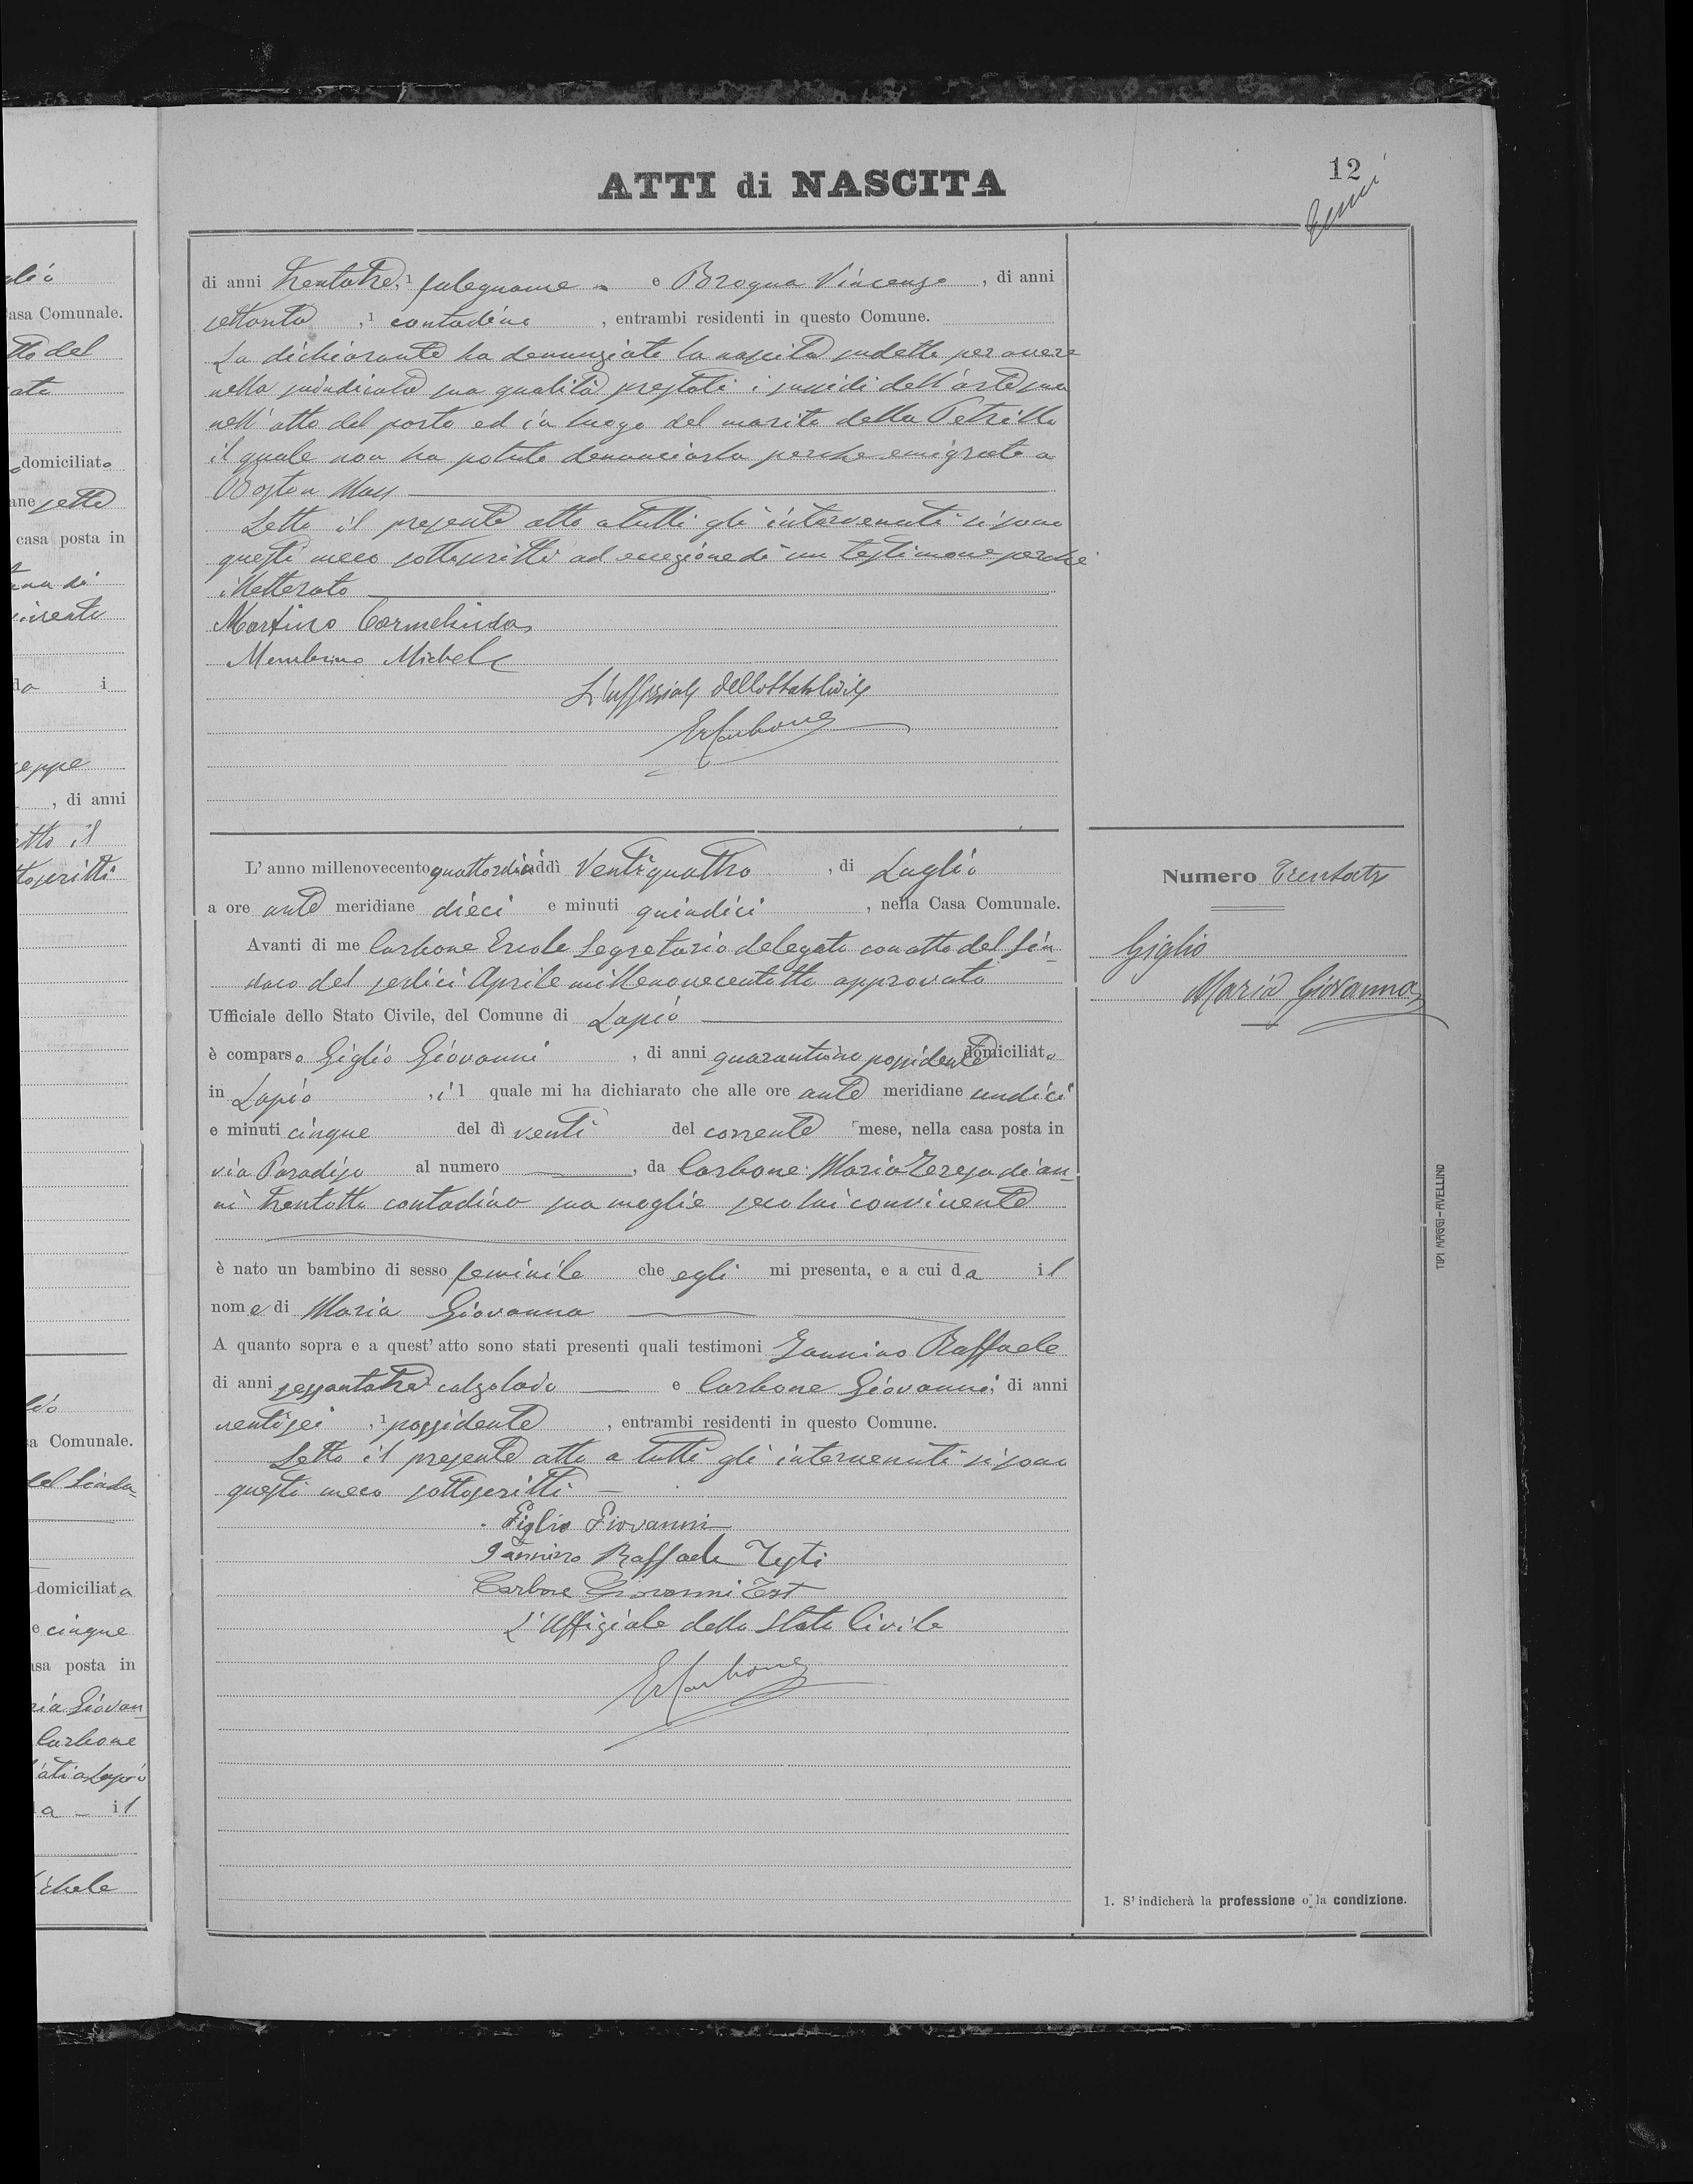 12
ATTI di NASCITA
di anni trentatre, 1 falegname - e Brogna Vincenzo, di anni
settanta, 1 contadino, entrambi residenti in questo Comune.
La dichiarante ha denunziato la nascita sudetta per avere
nella suindicata sua qualità prestati i sussidi dell'arte sua
nell'atto del parto ed in luogo del marito della Petrillo
il quale non ha potuto denunciarla perche emigrato a
Boston Mass
Letto il presente atto a tutti gli intervenuti si sono
questi meco sottoscritti ad eccezione di un testimone perchè
illetterato
Martino Carmelinda
Membrino Michele
L'uffiziale dello Stato Civile
ErCarbone
L'anno millenovecento quattordici addì Ventiquattro, di Luglio
a ore ante meridiane dieci e minuti quindici, nella Casa Comunale.
Avanti di me Carbone Ercole Segretario delegato con atto del Sin-
daco del sedici Aprile millenovecentotto approvato
Ufficiale dello Stato Civile, del Comune di Lapio
è comparso Giglio Giovanni, di anni quarantuno possidente domiciliato
in Lapio, il quale mi ha dichiarato che alle ore ante meridiane undici
e minuti cinque del dì venti del corrente mese, nella casa posta in
via Paradiso al numero, da Carbone Maria Teresa di an-
ni trentotto contadina sua moglie seco lui convivente
è nato un bambino di sesso feminile che egli mi presenta, e a cui da il
nome di Maria Giovanna
A quanto sopra e a quest'atto sono stati presenti quali testimoni Iannino Raffaele
di anni sessantatre calzolaio e Carbone Giovanni, di anni
ventisei, 1 possidente, entrambi residenti in questo Comune.
Letto il presente atto a tutti gli intervenuti si sono
questi meco sottoscritti
Giglio Giovanni
Iannino Raffaele Testi
Carbone Giovanni Test
L'Uffiziale dello Stato Civile
ErCarbone
Numero Trentatre
Giglio
Maria Giovanna
1. S'indicherà la professione o la condizione.
TIPI MAGGI-AVELLINO
asa Comunale.
tto del
domiciliato
ane sette
casa posta in
da i
seppe
, di anni
etto il
toscritti
a Comunale.
del Sinda-
domiciliata
e cinque
asa posta in
ria Giovan
Carbone
a - il
ichele